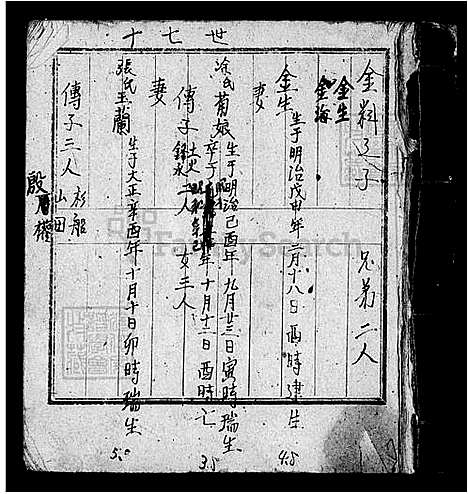 世七十
金料之子 兄弟二人
金生
金海
金生 生于明治戊申年二月十八日酉時建生
妻
涂氏菊娘 生于明治己酉年九月廿三日寅時瑞生
卒于昭和辛巳年十月十二日酉時亡
傳子 土火 錦永 二人 女三人
妻
張氏玉蘭 生于大正辛酉年十月十日卯時瑞生
傳子三人 杉船 山田
殷乃權
4.5
3.5
5.0
FamilySearch